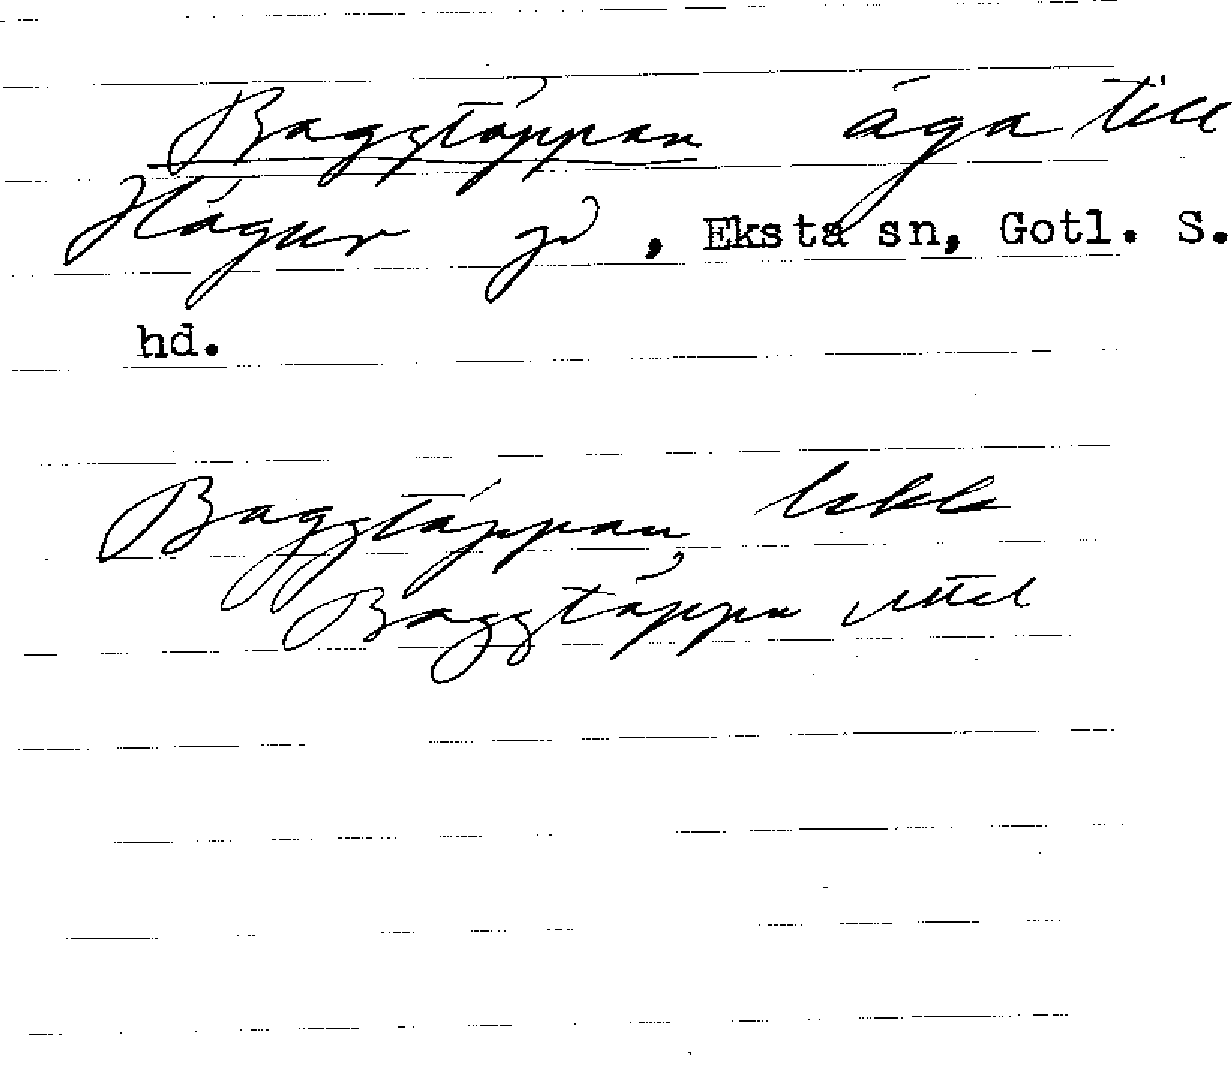 Baggtäppan äga till
Hägur gd, Eksta sn, Gotl. S.
hd.
Baggtäppan
Baggtäppu